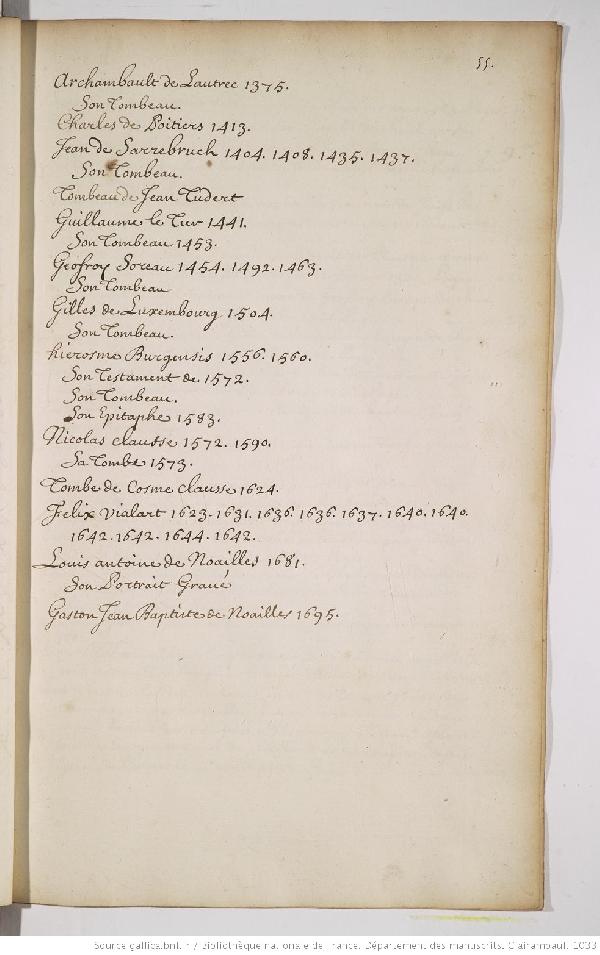 55.
Archambault de Lautrec 1375.
Son Tombeau.
Charles de Poitiers 1413.
Jean de Sarrebruch 1404. 1408. 1435. 1437.
Son Tombeau.
Tombeau de Jean Tudert
Guillaume le Tur 1441.
Son Tombeau 1453.
Geofroy Soreau 1454. 1492. 1463.
Son Tombeau
Gilles de Luxembourg 1504.
Son Tombeau.
hierosme Burgensis 1556. 1560.
Son Testament de 1572.
Son Tombeau.
Son Epitaphe 1583.
Nicolas clausse 1572. 1590.
Sa Tombe 1573.
Tombe de Cosme clausse 1624.
Felix Vialart 1623. 1631. 1636. 1636. 1637. 1640. 1640.
1642. 1642. 1644. 1642.
Louis antoine de Noailles 1681.
Son Portrait Gravé
Gaston Jean Baptiste de Noailles 1695.
Source gallica.bnf.fr / Bibliothèque nationale de France. Département des manuscrits. Clairambault 1033